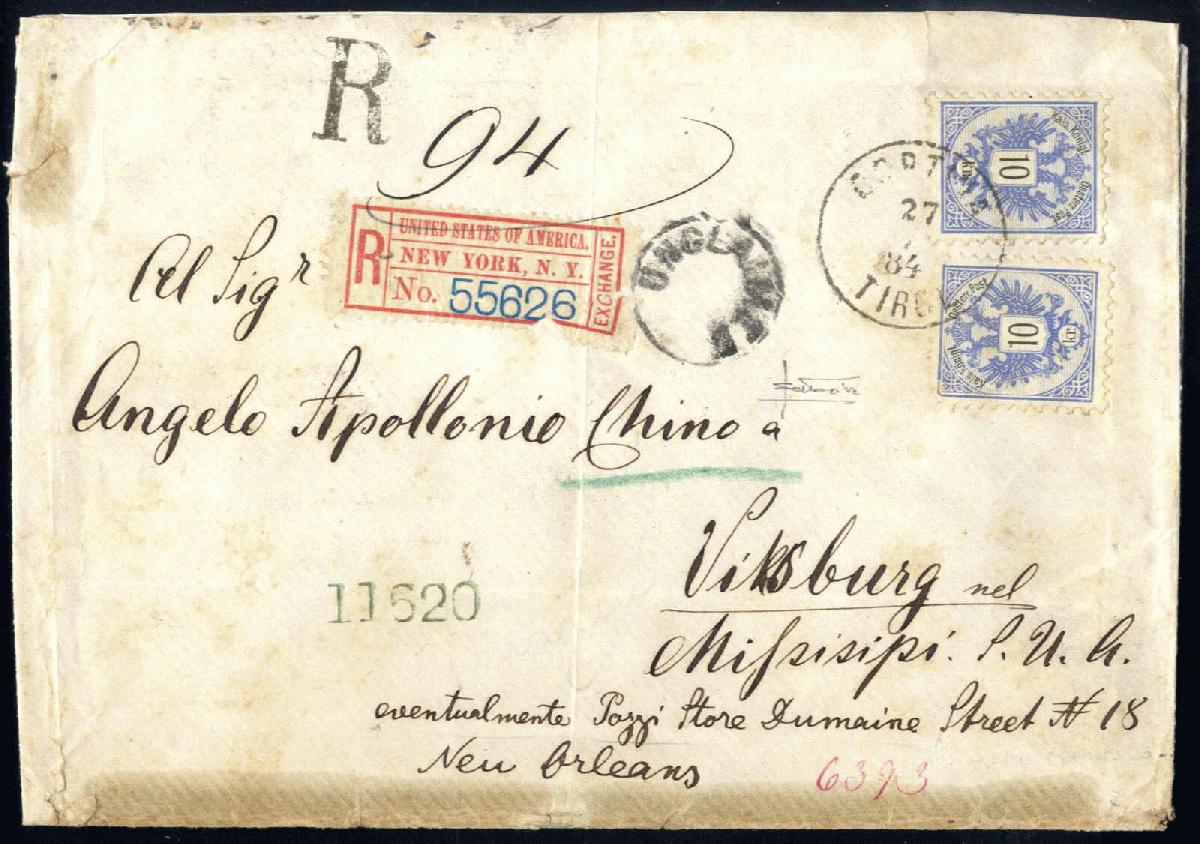 R
94
UNITED STATES OF AMERICA.
R
NEW YORK, N. Y.
No. 55626
EXCHANGE.
UNCLAIMED
27
84
TIROL
Kais. Königl.
Oesterr. Post
10
kr.
Kais. Königl.
Oesterr. Post
10
kr.
Al Sigr
Angelo Apollonio Chino a
Viksburg nel
Missisipi. S. U. A.
eventualmente Pozzi Store Dumaine Street N 18
New Orleans
11620
6393